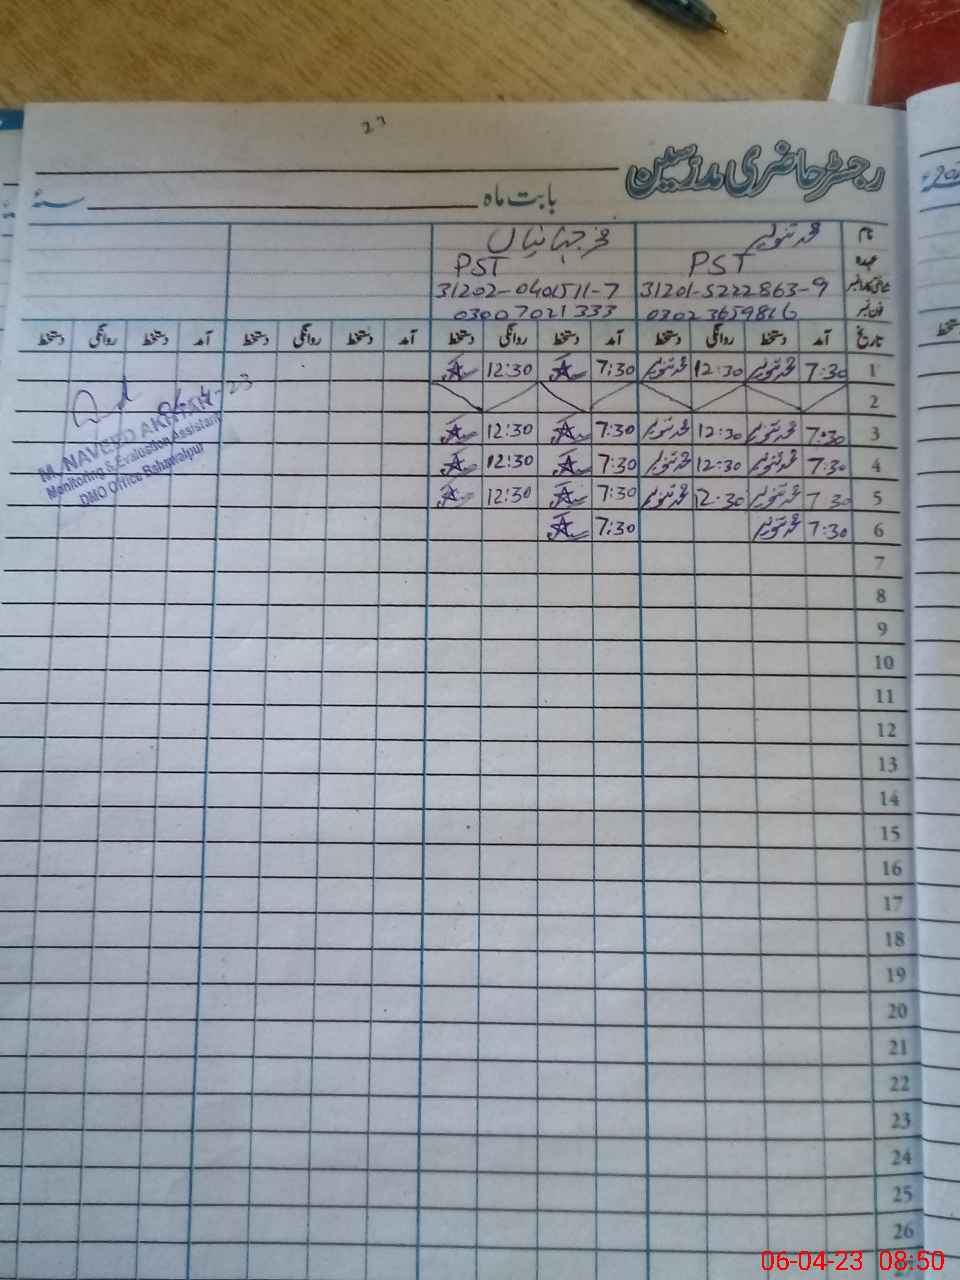 رجسٹر حاضری مدرسین
بابت ماہ سنۂ
نام محمد تنویر
عہدہ PST PST
31201-5222863-9 31202-0401511-7
فون نمبر 03023659816 03007021333
تاریخ آمد دستخط روانگی دستخط آمد دستخط روانگی دستخط آمد دستخط روانگی دستخط آمد دستخط روانگی دستخط
1 7:30 محمد تنویر 12:30 محمد تنویر 7:30 12:30
2
3 7:30 محمد تنویر 12:30 محمد تنویر 7:30 12:30
4 7:30 محمد تنویر 12:30 محمد تنویر 7:30 12:30
5 7:30 محمد تنویر 12:30 محمد تنویر 7:30 12:30
6 7:30 محمد تنویر 7:30
7
8
9
10
11
12
13
14
15
16
17
18
19
20
21
22
23
24
25
26
M. NAVEED AKHTAR
Monitoring & Evaluation Assistant
DMO Office Bahawalpur
06-04-23 08:50